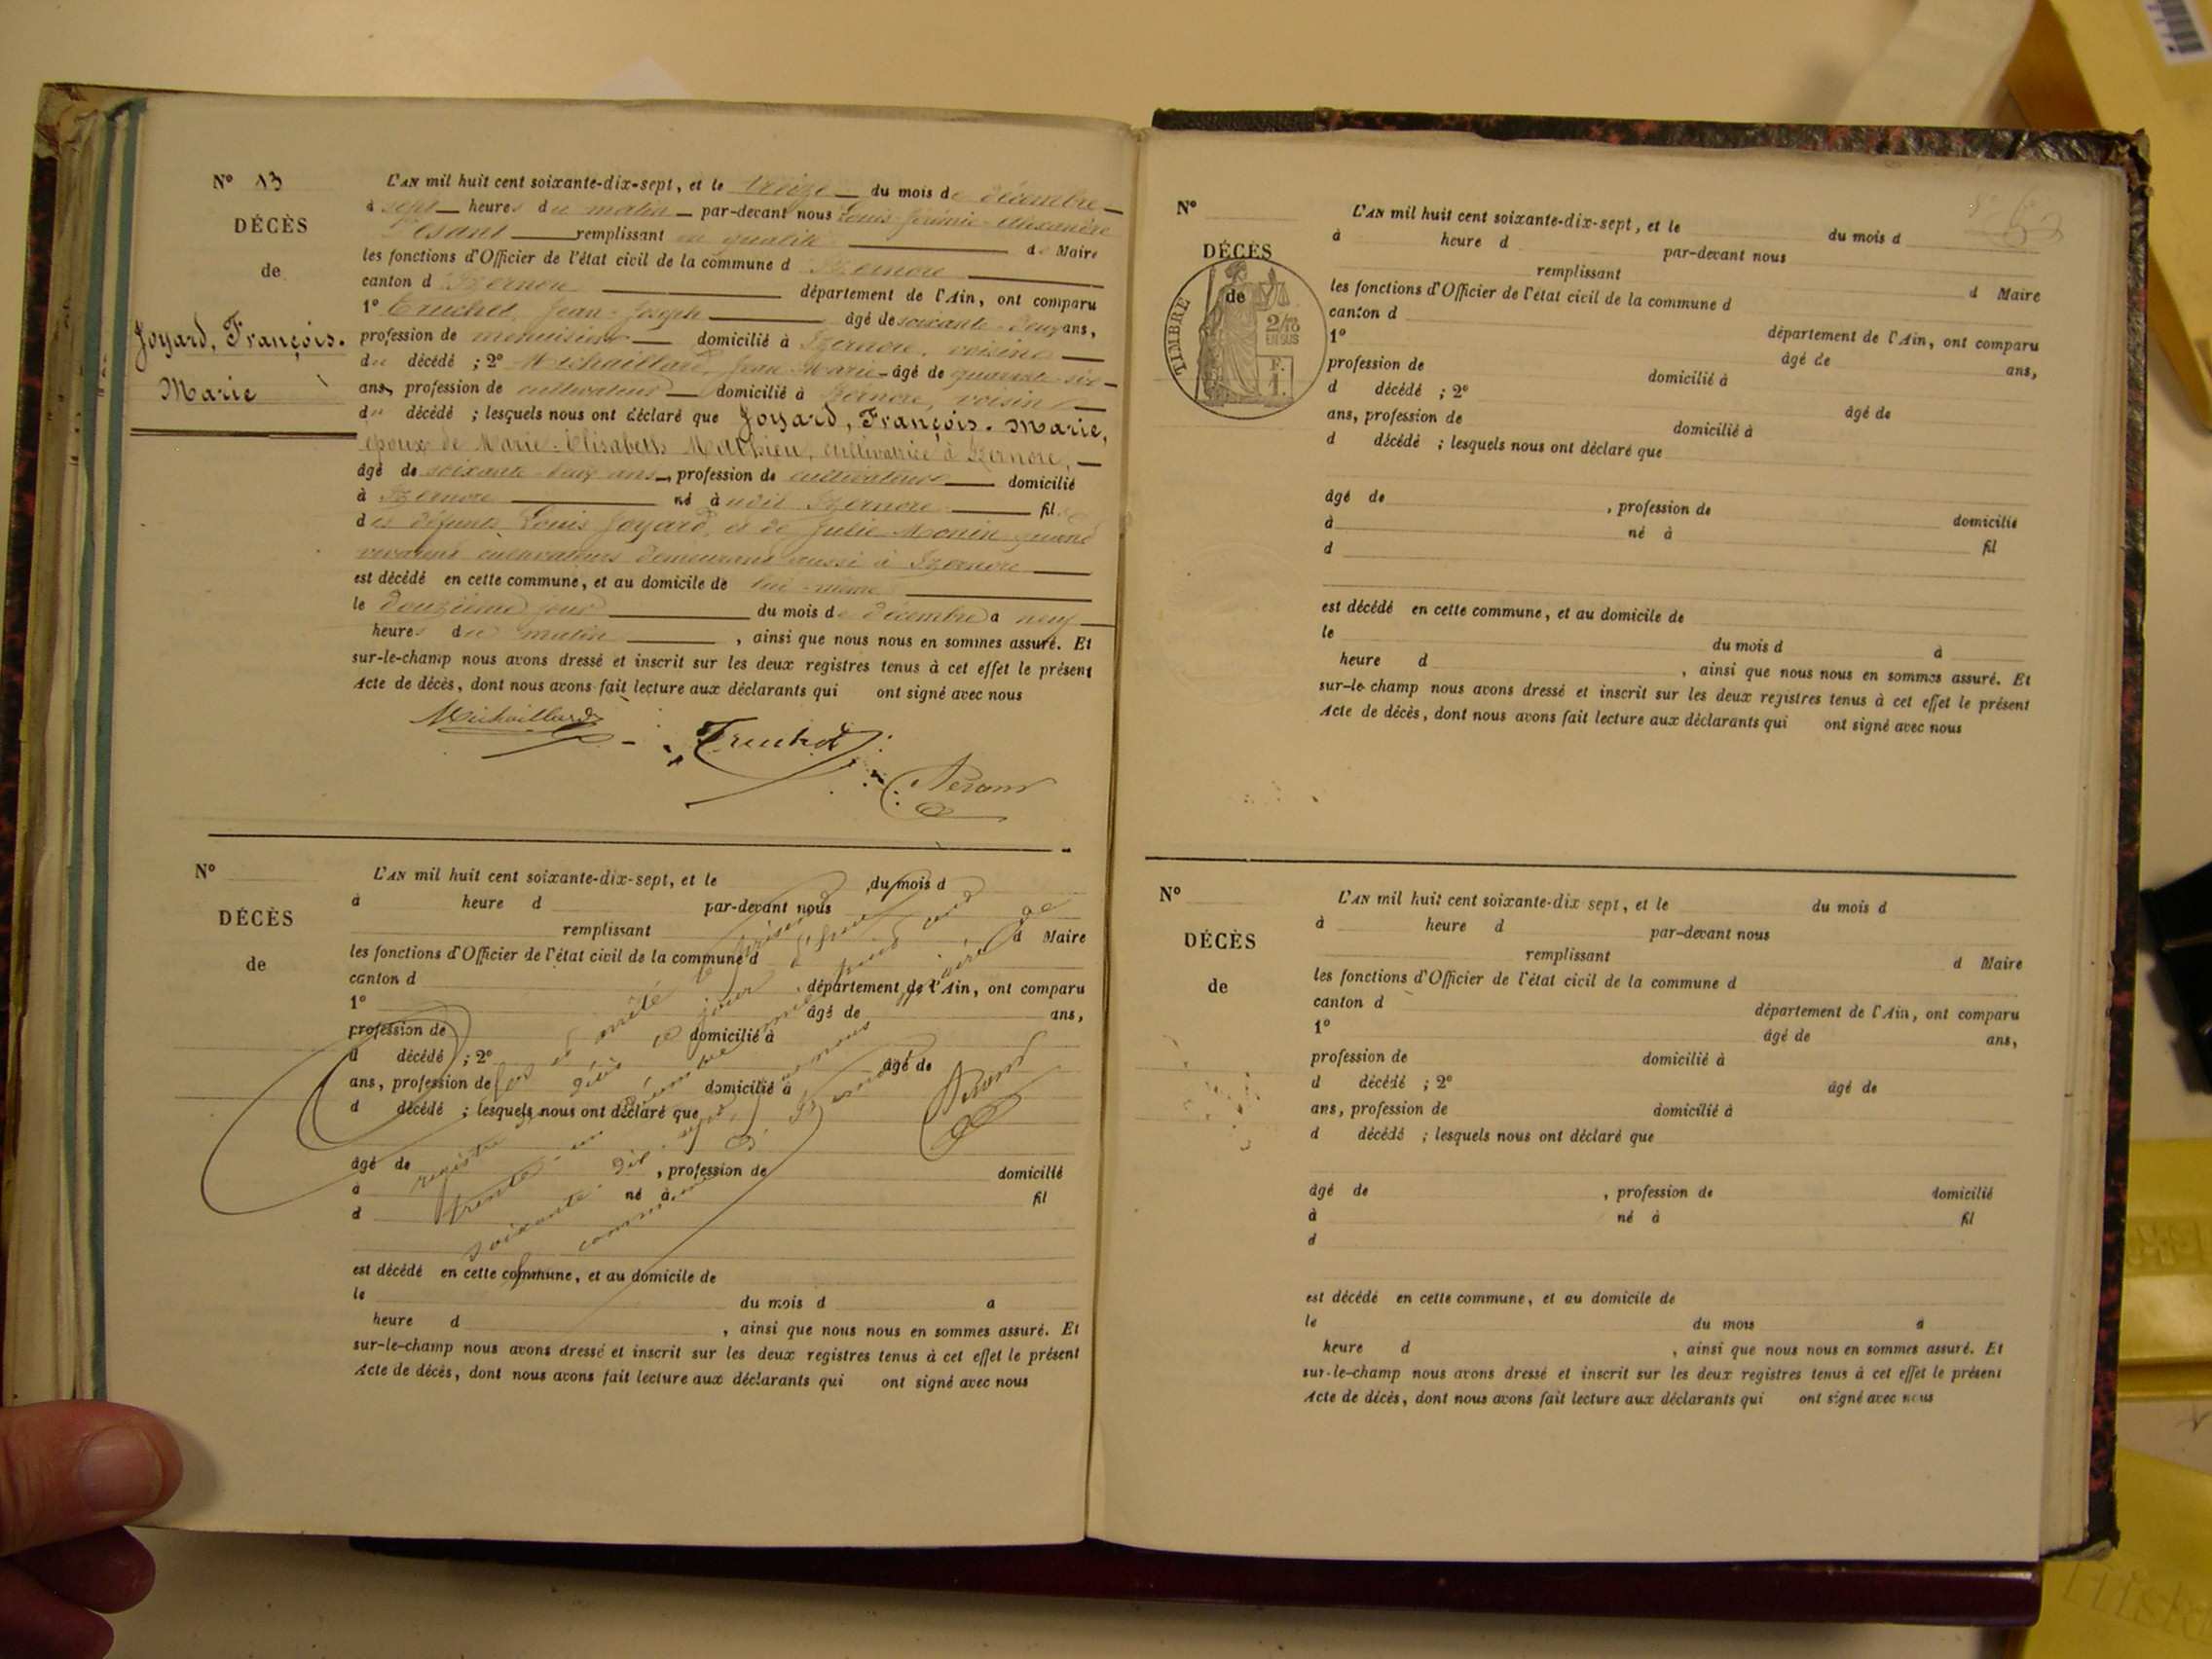 N° 13
DÉCÈS
de
Joyard, François.
Marie
L'AN mil huit cent soixante-dix-sept, et le treize du mois de décembre
à sept heures du matin par-devant nous Louis Jérémie Alexandre
remplissant en qualité de Maire
les fonctions d'Officier de l'état civil de la commune d Izernore
canton d Izernore département de l'Ain, ont comparu
1° Truchet, Jean-Joseph âgé de soixante-deux ans,
profession de menuisier domicilié à Izernore, voisin
du décédé ; 2° Michaillard, Jean-Marie âgé de quarante-six
ans, profession de cultivateur domicilié à Izernore, voisin
du décédé ; lesquels nous ont déclaré que Joyard, François-Marie,
époux de Marie-Elisabeth Mathieu, cultivatrice à Izernore,
âgé de soixante-deux ans, profession de cultivateur domicilié
à Izernore né à udit Izernore fils
des défunts Louis Joyard, et de Julie Monin quand
vivaient cultivateurs demeurant aussi à Izernore
est décédé en cette commune, et au domicile de lui-même
le douzième jour du mois de décembre a neuf
heures du matin , ainsi que nous nous en sommes assuré. Et
sur-le-champ nous avons dressé et inscrit sur les deux registres tenus à cet effet le présent
Acte de décès, dont nous avons fait lecture aux déclarants qui ont signé avec nous
Michaillard
Truchet
N°
DÉCÈS
de
L'AN mil huit cent soixante-dix-sept, et le du mois d
à heure d par-devant nous
remplissant d Maire
les fonctions d'Officier de l'état civil de la commune d
canton d département de l'Ain, ont comparu
1° âgé de ans,
profession de domicilié à
d décédé ; 2° âgé de
ans, profession de domicilié à
d décédé ; lesquels nous ont déclaré que
âgé de , profession de domicilié
à né à fil
d
est décédé en cette commune, et au domicile de
le du mois d a
heure d , ainsi que nous nous en sommes assuré. Et
sur-le-champ nous avons dressé et inscrit sur les deux registres tenus à cet effet le présent
Acte de décès, dont nous avons fait lecture aux déclarants qui ont signé avec nous
N°
DÉCÈS
de
TIMBRE
2/10
EN SUS
F.
1.
L'AN mil huit cent soixante-dix-sept, et le du mois d
à heure d par-devant nous
remplissant d Maire
les fonctions d'Officier de l'état civil de la commune d
canton d département de l'Ain, ont comparu
1° âgé de ans,
profession de domicilié à
d décédé ; 2° âgé de
ans, profession de domicilié à
d décédé ; lesquels nous ont déclaré que
âgé de , profession de domicilié
à né à fil
d
est décédé en cette commune, et au domicile de
le du mois d à
heure d , ainsi que nous nous en sommes assuré. Et
sur-le-champ nous avons dressé et inscrit sur les deux registres tenus à cet effet le présent
Acte de décès, dont nous avons fait lecture aux déclarants qui ont signé avec nous
N°
DÉCÈS
de
L'AN mil huit cent soixante-dix sept, et le du mois d
à heure d par-devant nous
remplissant d Maire
les fonctions d'Officier de l'état civil de la commune d
canton d département de l'Ain, ont comparu
1° âgé de ans,
profession de domicilié à
d décédé ; 2° âgé de
ans, profession de domicilié à
d décédé ; lesquels nous ont déclaré que
âgé de , profession de domicilié
à né à fil
d
est décédé en cette commune, et au domicile de
le du mois d
heure d , ainsi que nous nous en sommes assuré. Et
sur-le-champ nous avons dressé et inscrit sur les deux registres tenus à cet effet le présent
Acte de décès, dont nous avons fait lecture aux déclarants qui ont signé avec nous